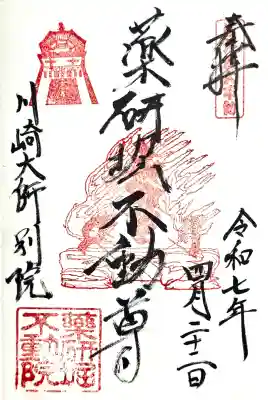 奉拝
令和七年
四月二十二日
薬研堀不動尊
川崎大師別院
薬研堀
不動院